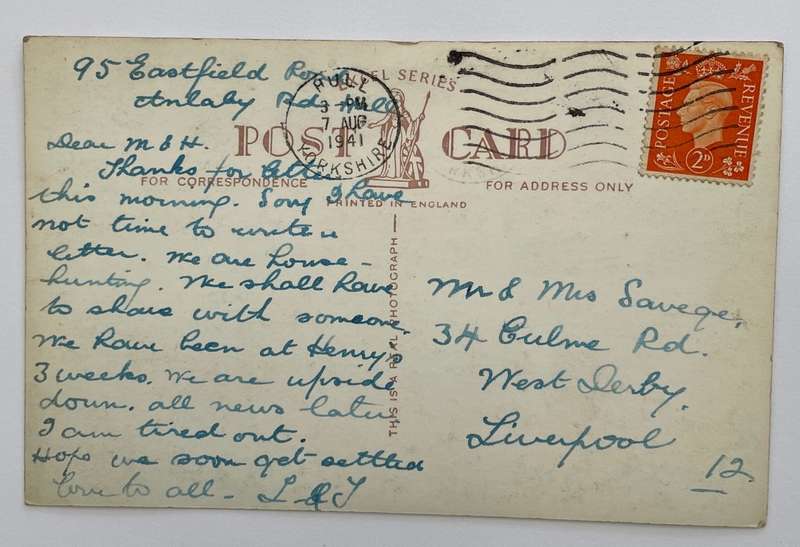 95 Eastfield Road
Anlaby Rd. Hull
Dear M & H.
Thanks for letter
this morning. Sory I have
not time to write a
letter. We are house-
hunting. We shall have
to share with someone.
We have been at Henry's
3 weeks. We are upside
down. all news later
I am tired out.
Hope we soon get settled
Love to all - L & J
SERIES
POST CARD
FOR CORRESPONDENCE
FOR ADDRESS ONLY
PRINTED IN ENGLAND
THIS IS A REAL PHOTOGRAPH
HULL
3 - PM
7 AUG
1941
YORKSHIRE
POSTAGE
REVENUE
2D
Mr & Mrs Savege,
34 Culme Rd.
West Derby,
Liverpool
12.